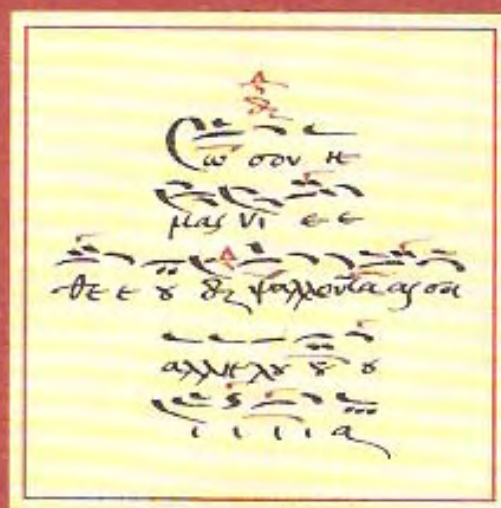 Σω σον η
μας Υι ε ε
θε ε ȣ ψαλλοντας σοι
αλληλȣ ȣ ȣ
ι ι ι ι α